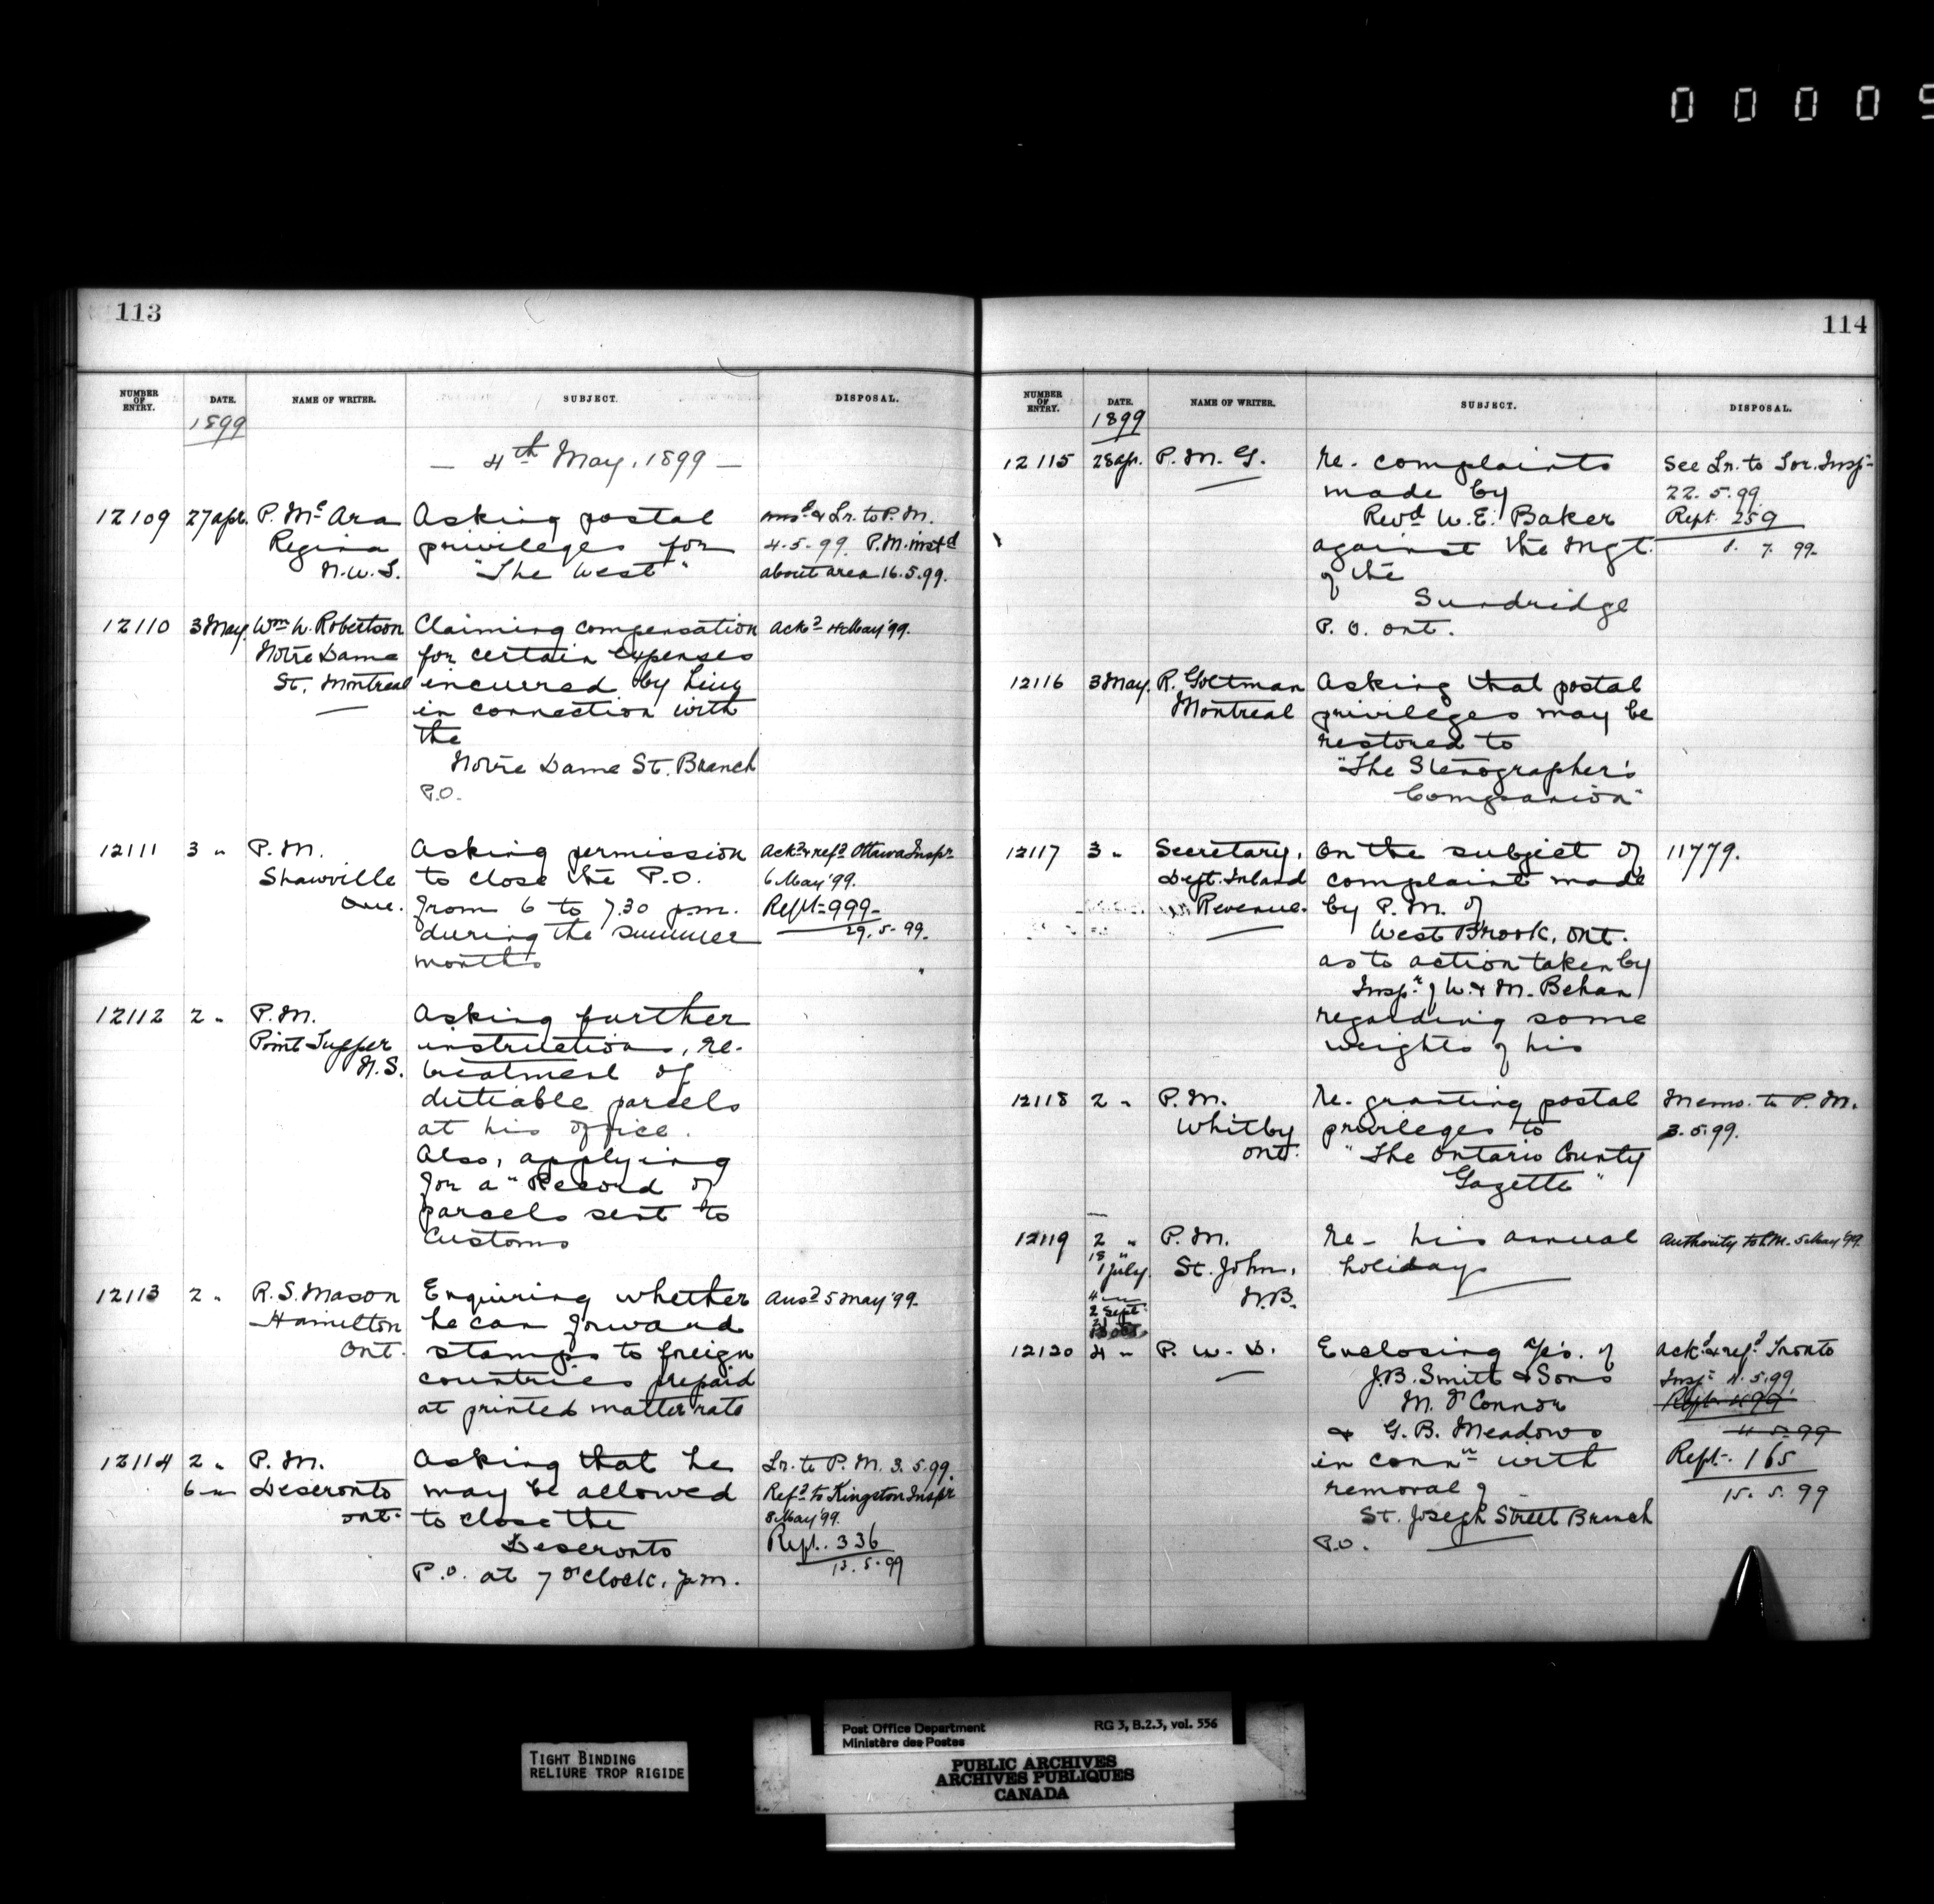 0 0 0 0 5
113
NUMBER OF ENTRY. DATE. NAME OF WRITER. SUBJECT. DISPOSAL.
1899
— 4th May, 1899 —
12109 27 Apl. P. Mc Ara Asking postal ansd & Lr. to P.M.
Regina privileges for 4.5.99. P.M. instd
N.W.T. "The West" about area 16.5.99.
12110 3 May. Wm W. Robertson Claiming compensation Ackd 4 May '99.
Notre Dame for certain expenses
St. Montreal incurred by him
in connection with
the
Notre Dame St. Branch
P.O.
12111 3 " P.M. Asking permission Ackd & refd Ottawa Inspr
Shawville to close the P.O. 6 May '99.
Que. from 6 to 7.30 p.m. Rept. 999
during the summer 29.5.99.
months
12112 2 " P.M. Asking further
Point Tupper instructions, re-
N.S. treatment of
dutiable parcels
at his office.
Also, applying
for a "Record of
parcels sent to
Customs
12113 2 " R.S. Mason Enquiring whether Ansd 5 May '99.
Hamilton he can forward
Ont. stamps to foreign
countries prepaid
at printed matter rate
12114 2 " P.M. Asking that he Lr. to P.M. 3.5.99.
6 " Deseronto may be allowed Refd to Kingston Inspr
Ont. to close the 8 May '99.
Deseronto Rept. 336
P.O. at 7 O'Clock, p.m. 13.5.99
114
NUMBER OF ENTRY. DATE. NAME OF WRITER. SUBJECT. DISPOSAL.
1899
12115 28 Ap. P.M.G. Re- complaints See Lr. to Tor. Insp
made by 22.5.99.
Revd W.E. Baker Rept. 259
against the Mgt. 1. 7. 99.
of the
Sundridge
P.O. Ont.
12116 3 May. R. Goltman Asking that postal
Montreal privileges may be
restored to
"The Stenographer's
Companion"
12117 3 " Secretary, On the subject of 11779.
Dept. Inland complaint made
Revenue. by P.M. of
West Brook, Ont.
as to action taken by
Inspr of W. & M. Behan
regarding some
weights of his
12118 2 " P.M. Re- granting postal Memo. to P.M.
Whitby privileges to 3.5.99.
Ont. "The Ontario County
Gazette"
12119 2 " P.M. Re- his annual Authority to P.M. 5 May '99.
18 "
1 July. St. John, holidays
4 " N.B.
2 Sept.
12120 4 " P.W.D. Enclosing a/cs. of Ackd & refd Tronto
J.B. Smith & Sons Insp 4.5.99
M. O'Connor Rept. 499
& G.B. Meadows 4.5.99
in connn with Rept. 165
removal of 15.5.99
St. Joseph Street Branch
P.O.
TIGHT BINDING
RELIURE TROP RIGIDE
Post Office Department RG 3, B.2.3, vol. 556
Ministère des Postes
PUBLIC ARCHIVES
ARCHIVES PUBLIQUES
CANADA